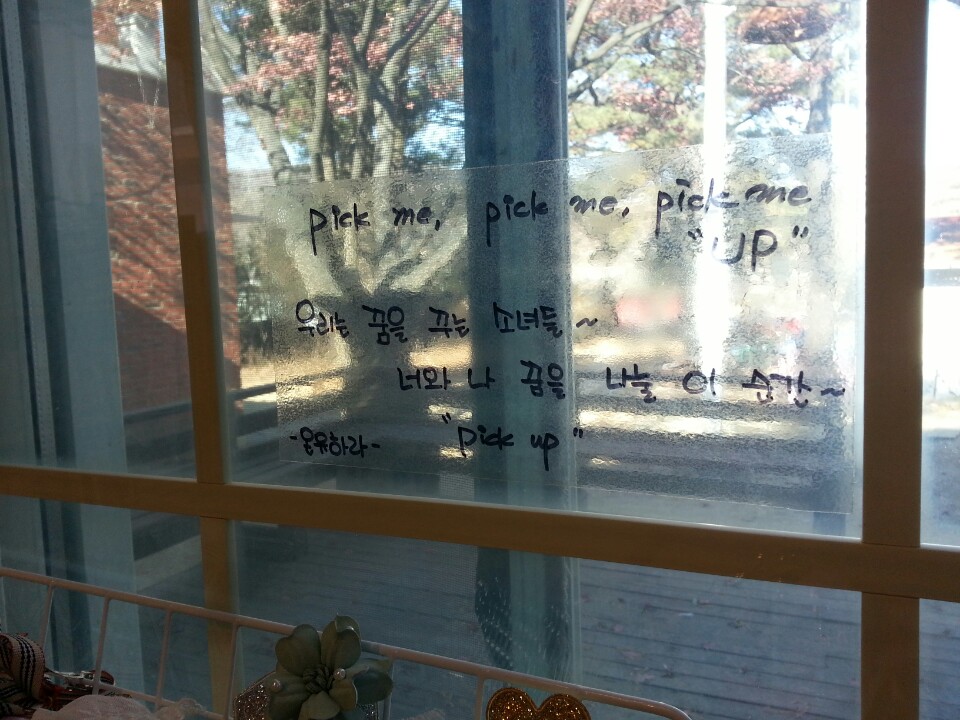 pick me, pick me, pick me
"UP"
우리는 꿈을 꾸는 소녀들~
너와 나 꿈을 나눌 이 순간~
-웅유하라- "pick up"